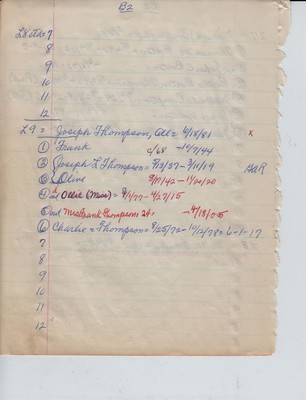 B2
L8 = 7
8
9
10
11
12
L9 = Joseph Thompson, = 4/18/81 x
① Frank c/68 - 10/9/44
③ Joseph L Thompson = 8/2/37 - 3/11/19 GAR
② Olive 8/17/42 - 11/20/20
④ Ollie (Miss) = 9/1/77 - 4/27/15
⑤ Mrs Frank Thompson 24 - 4/18/05
⑥ Charlie = Thompson = 8/25/72 - 10/12/78 = 6-1-17
7
8
9
10
11
12